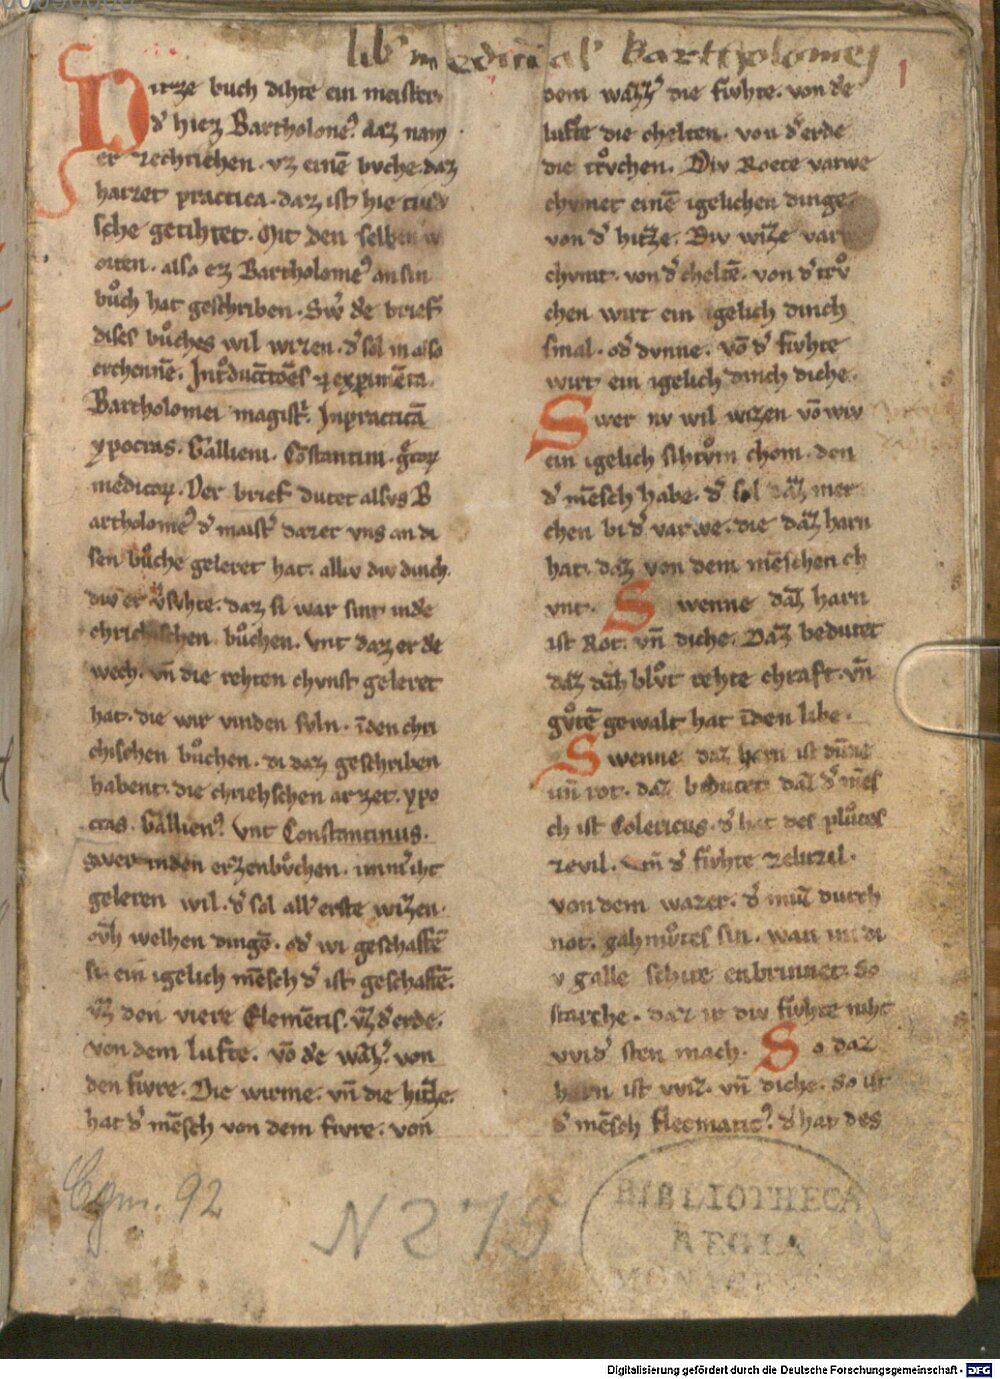 lib' medicinal' Bartholomej
1
Dirze buch dihte ein meister.
d' hiez Bartholone'. daz nam
er zechrichen. vz einē bvche daz
haizet practica. daz ist hie tved
sche getihtet. Mit den selben w
orten. also ez Bartholome' an sin
bůch hat geschriben. Sw' de brief
dises bůches wil wizen. d' sol in also
erchennē. Int'ductōes ⁊ experimēta.
Bartholomei magist'. In practicā
ypocras. Gallieni. Cōstantini. g'corꝝ
medicorꝝ. Der brief dutet alsvs B
artholome' d' maist' dazet vns an di
sen bůche geleret hat. alliv div dinch.
div er v'svhte. daz si war sint in de
chrichischen bůchen. Vnt daz er de
wech. vn̄ die rehten chvnst geleret
hat. die wir vinden svln. in den chri
chischen bůchen. di daz geschriben
habent. die chriehschen arzet. ypo
cras. Gallien'. Vnt Constantinus.
Swer in den erzenbůchen. imm' iht
geleren wil. d' sol all' erste wizen.
vō welhen dingē. od' wi geschaffē
si. ein igelich mēsch d' ist geschaffē.
vz den viere Elemētis. vz d' erde.
von dem lufte. vō de waz'. von
den fivre. Die wirme. vn̄ die hitze.
hat d' mēsch von dem fivre. von
dem waz'z' die fivhte. von de
lufte die chelten. von d' erde
die trůchen. Div Roete varwe
chvmet einē igelichen dinge.
von d' hitze. Div wize varw
chvmt. von d' cheltē. von d' trů
chen wirt ein igelich dinch
smal. od' dvnne. vō d' fivhte
wirt ein igelich dinch diche.
Swer nv wil wizen vō wiv
ein igelich sihtům chom. den
d' mēsch habe. d' sol daz mer
chen bi d' varwe. die daz harn
hat. daz von dem mēschen ch
vmt. Swenne daz harn
ist Rot. vn̄ diche. Daz bedutet
daz daz blůt rehte chraft. vn̄
gůtē gewalt hat in den libe.
Swenne daz harn ist dunne
vn̄ rot. daz bedutet daz d' mēs
ch ist Colericus. d' hat des plůtes
zevil. vn̄ d' fivhte zelutzel.
von dem wazer. d' můz durch
not. gahmůtes sin. wan im di
v galle schire enbrinnet. So
starche. daz ir div fivhte niht
wid' sten mach. So daz
harn ist wiz. vn̄ diche. So ist
d' mēsch flecmatic'. d' hat des
Cgm. 92
N 275
BIBLIOTHECA
REGIA
MONACENSIS
Digitalisierung gefördert durch die Deutsche Forschungsgemeinschaft - DFG